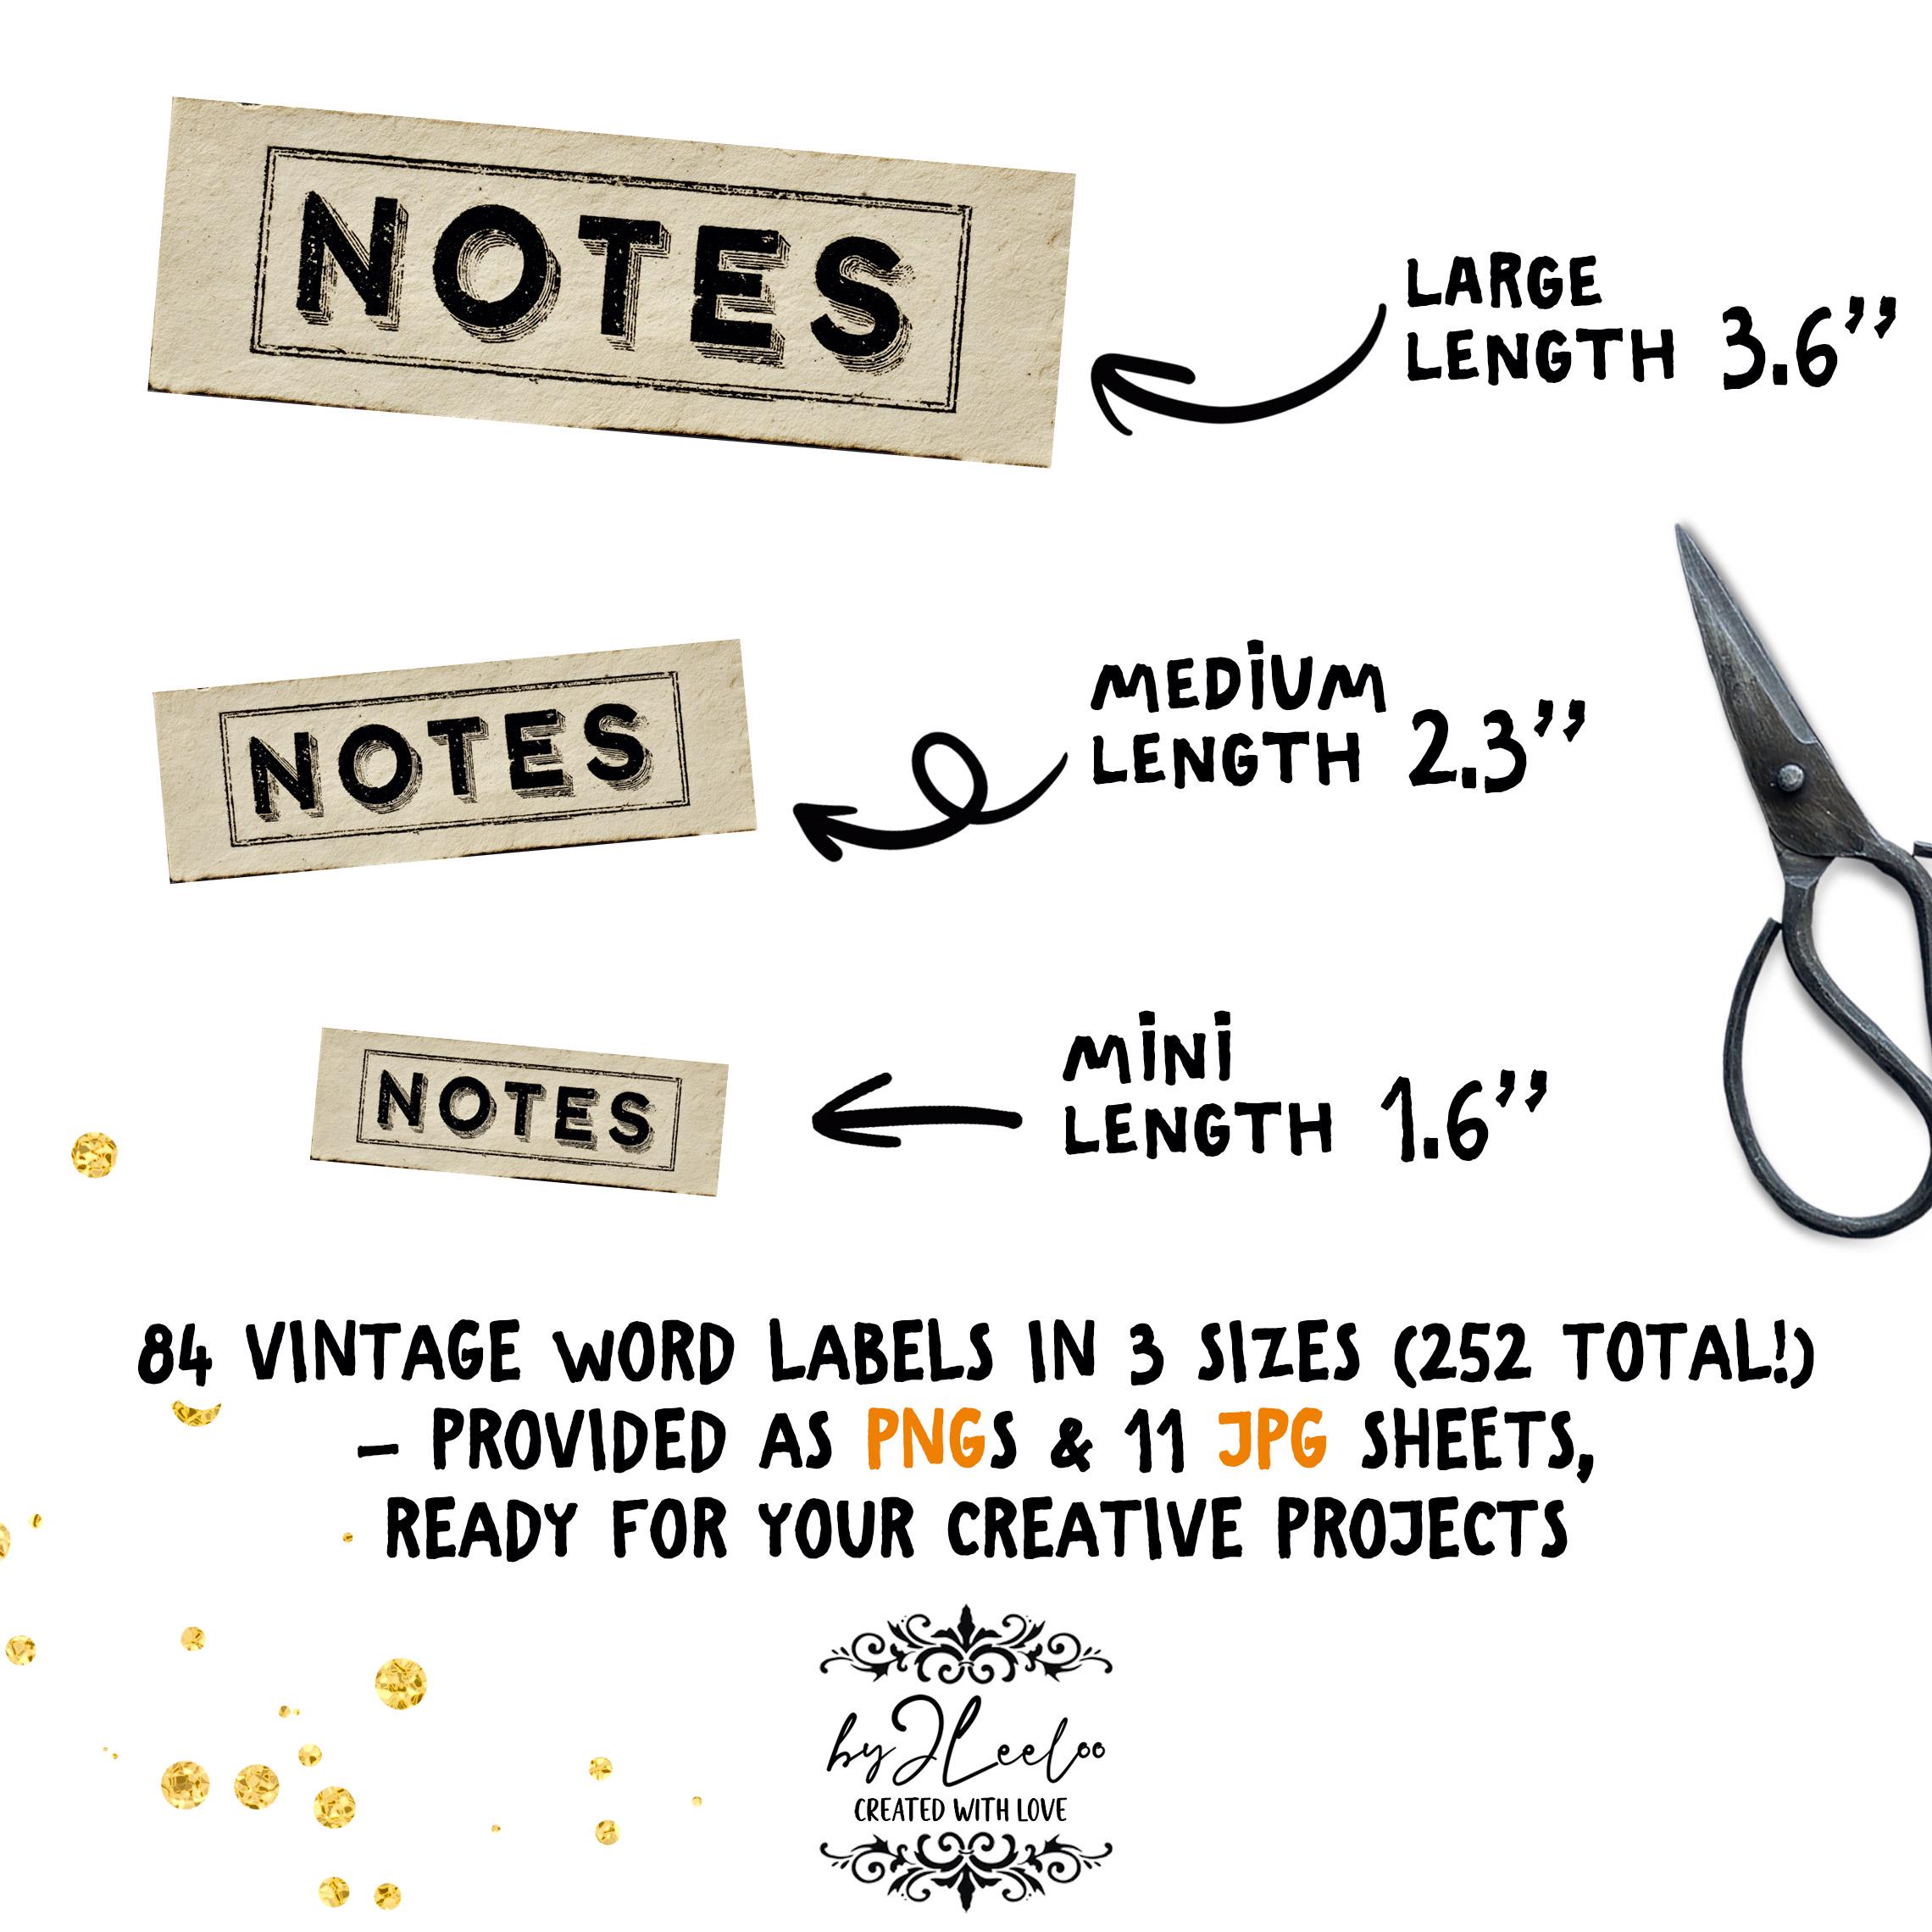 NOTES
LARGE
LENGTH 3.6”
NOTES
MEDIUM
LENGTH 2.3”
NOTES
MINI
LENGTH 1.6”
84 VINTAGE WORD LABELS IN 3 SIZES (252 TOTAL!)
– PROVIDED AS PNGS & 11 JPG SHEETS,
READY FOR YOUR CREATIVE PROJECTS
by JLeeloo
CREATED WITH LOVE